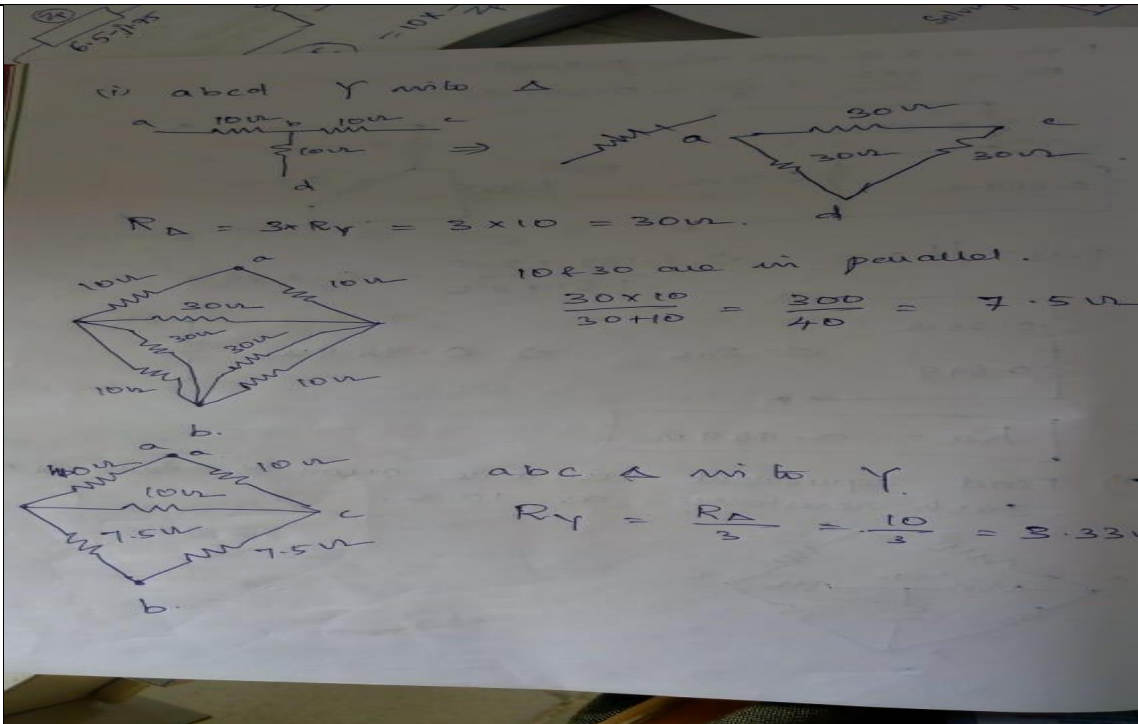 6.5-j1.75
=10×
(i) abcd Y into Δ
a 10Ω b 10Ω c
10Ω
d
⇒
30Ω
a c
30Ω 30Ω
d
RΔ = 3×RY = 3×10 = 30Ω.
a
10Ω 10Ω
30Ω
30Ω 30Ω
10Ω 10Ω
b.
10 & 30 are in parallel.
30×10 / 30+10 = 300 / 40 = 7.5Ω
a a
10Ω 10Ω
10Ω
c
7.5Ω 7.5Ω
b.
abc Δ into Y.
RY = RΔ / 3 = 10 / 3 = 3.33